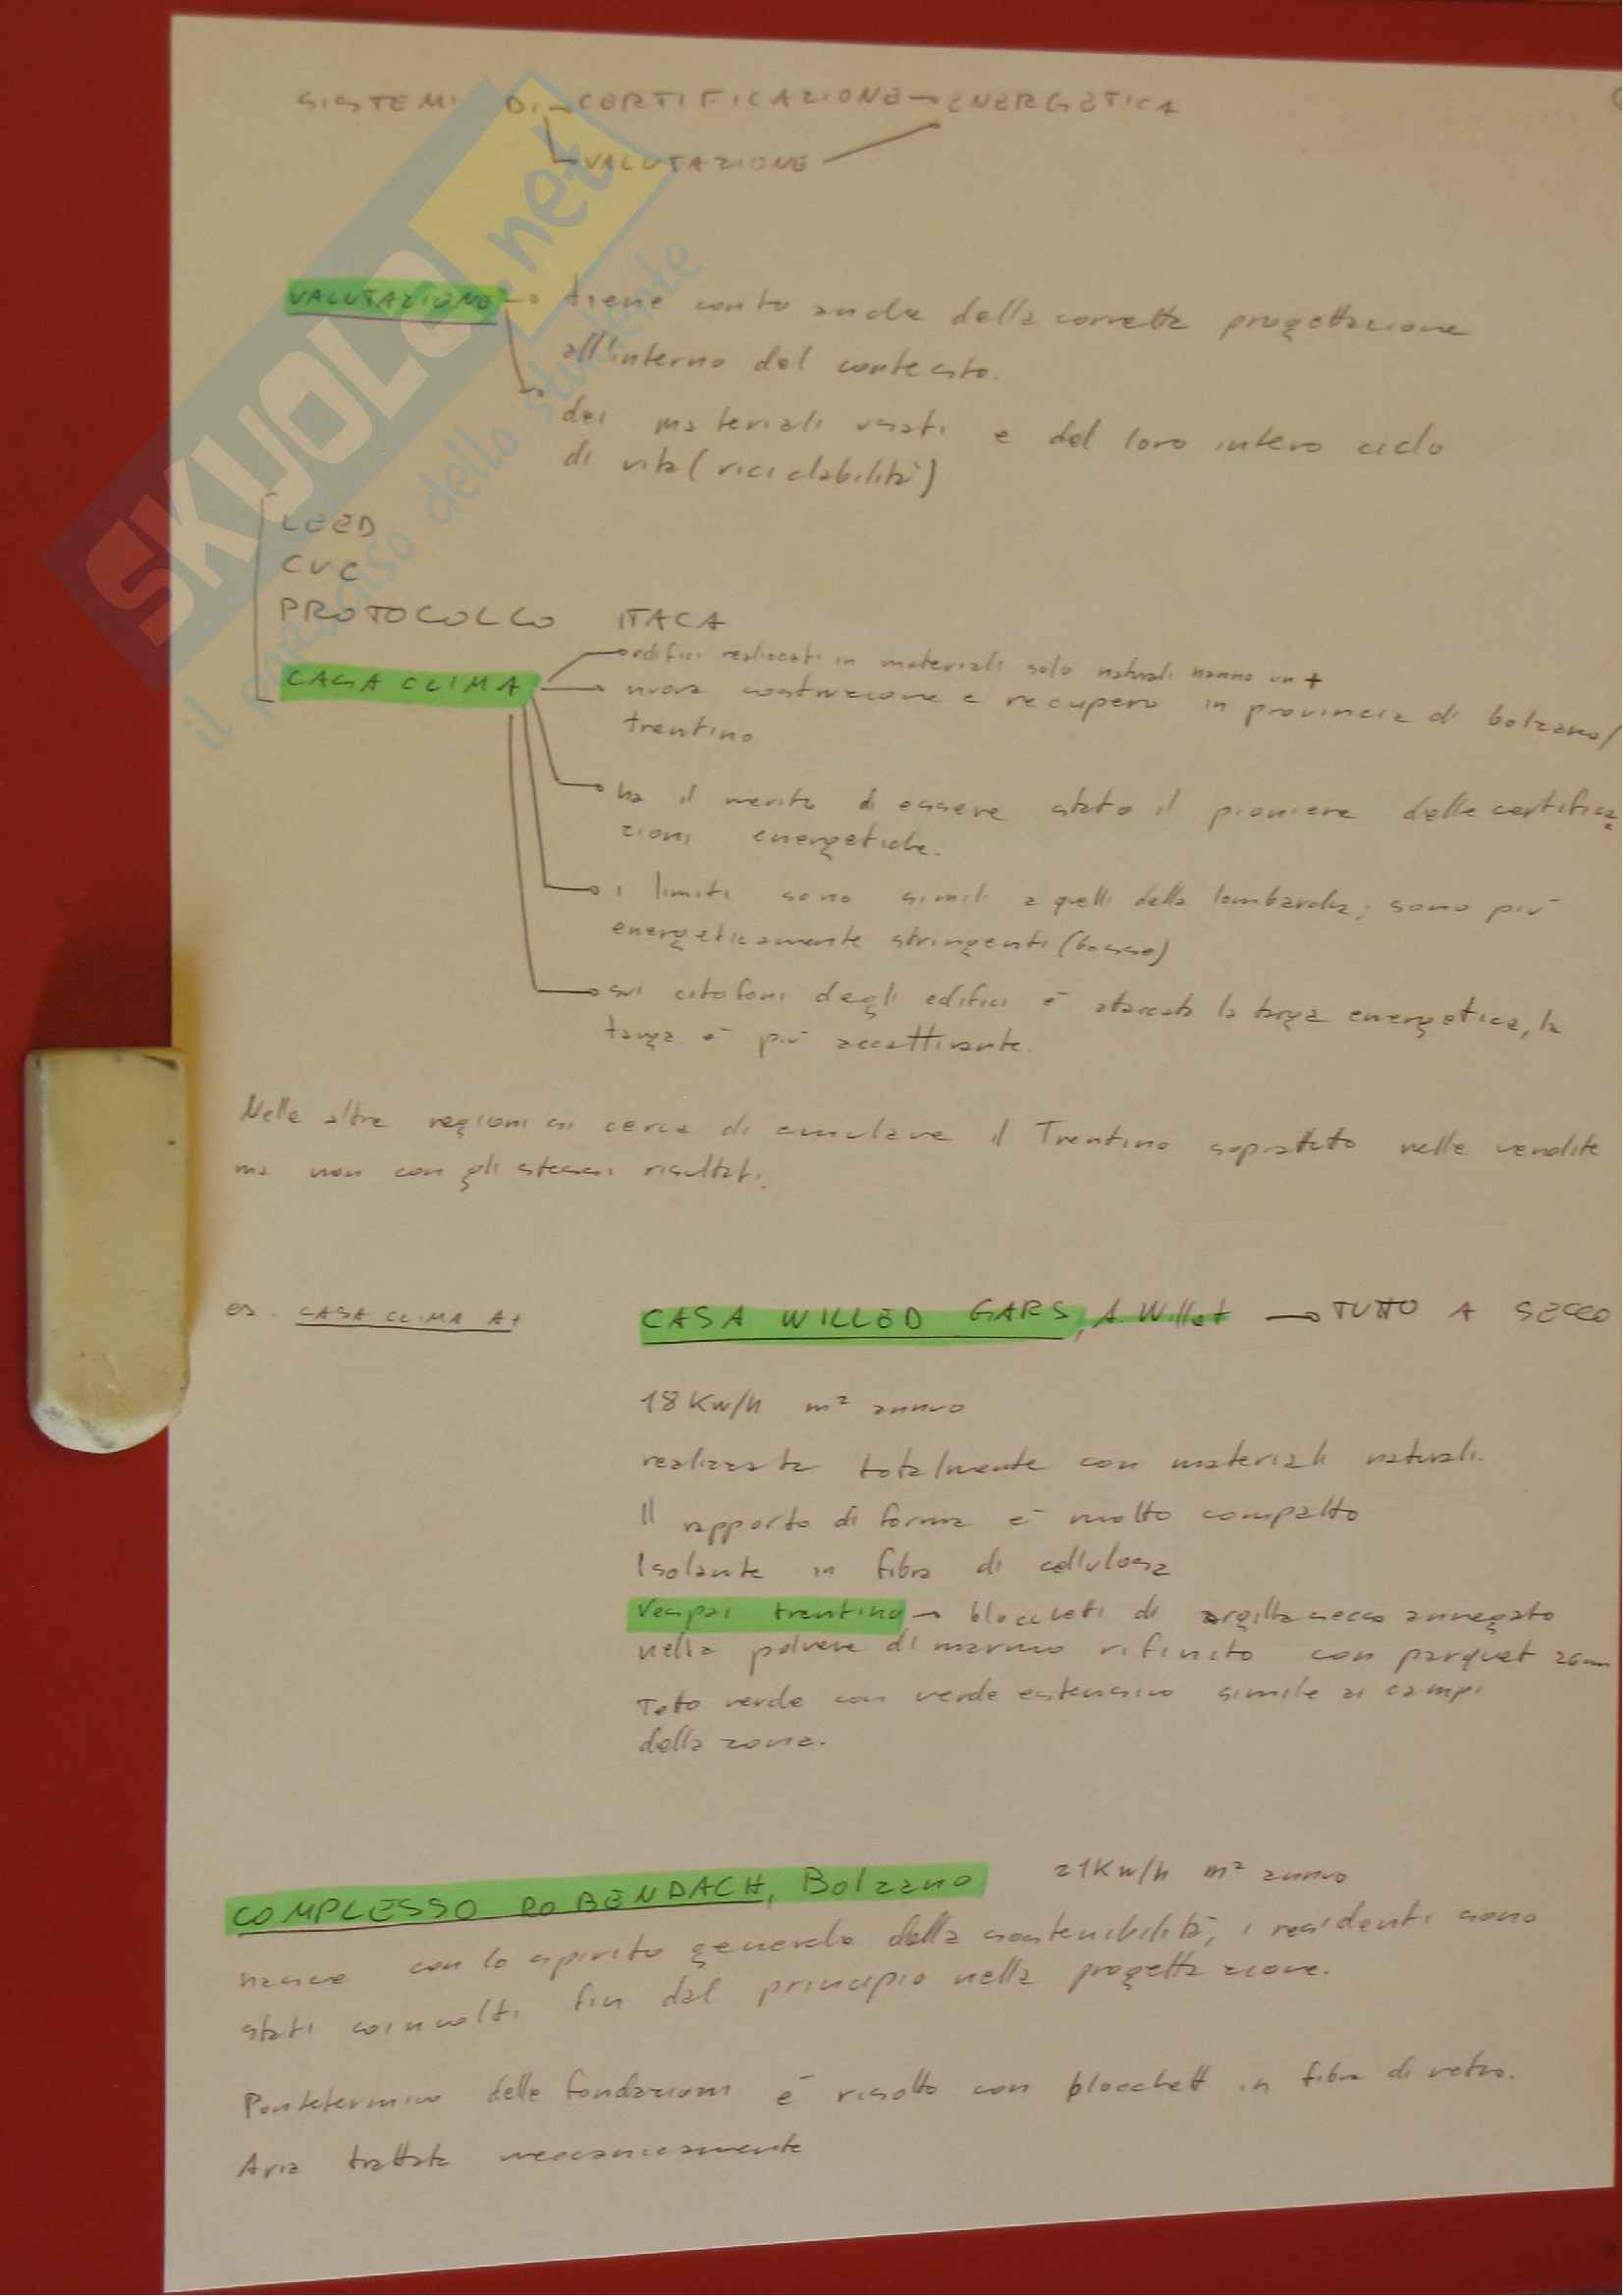 SISTEMI DI CERTIFICAZIONE ENERGETICA
VALUTAZIONE
VALUTAZIONE → tiene conto anche della corretta progettazione
all'interno del contesto.
dei materiali usati e del loro intero ciclo
di vita (riciclabilità)
LEED
CVC
PROTOCOLLO ITACA
edifici realizzati in materiali solo naturali hanno un +
CASA CLIMA
nuova costruzione e recupero in provincia di bolzano/
trentino
ha il merito di essere stato il pioniere delle certifica
zioni energetiche.
i limiti sono simili a quelli della lombardia; sono più
energeticamente stringenti (basso)
sui citofoni degli edifici è ataccata la targa energetica, la
targa è più accattivante.
Nelle altre regioni si cerca di emulare il Trentino sopratuto nelle vendite
ma non con gli stessi risultati.
es. CASA CLIMA A+ CASA WILLED GARS, A. Willet → TUTTO A SECCO
18 Kw/h m² annuo
realizzata totalmente con materiali naturali.
Il rapporto di forma è molto compatto
Isolante in fibra di cellulosa
Vespai trentino → bloccheti di argilla secca annegato
nella polvere di marmo rifinito con parquet
Teto verde con verde estensivo simile ai campi
della zona.
COMPLESSO ROBENDACH, Bolzano 21 Kw/h m² annuo
nasce con lo spirito generale della sostenibilità, i residenti sono
stati coinvolti fin dal principio nella progettazione.
Pontetermico delle fondazioni è risolto con blocchett in fibra di vetro.
Aria trattata meccanicamente
SKUOLA.net
il paradiso dello studente